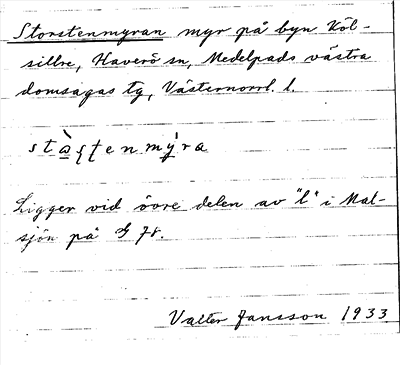 Storstenmyran myr på byn Köl-
sillre, Haverö sn, Medelpads västra
domsagas tg, Västernorrl. l.
Ligger vid övre delen av "l" i Mal-
sjön på
Valter Jansson 1933